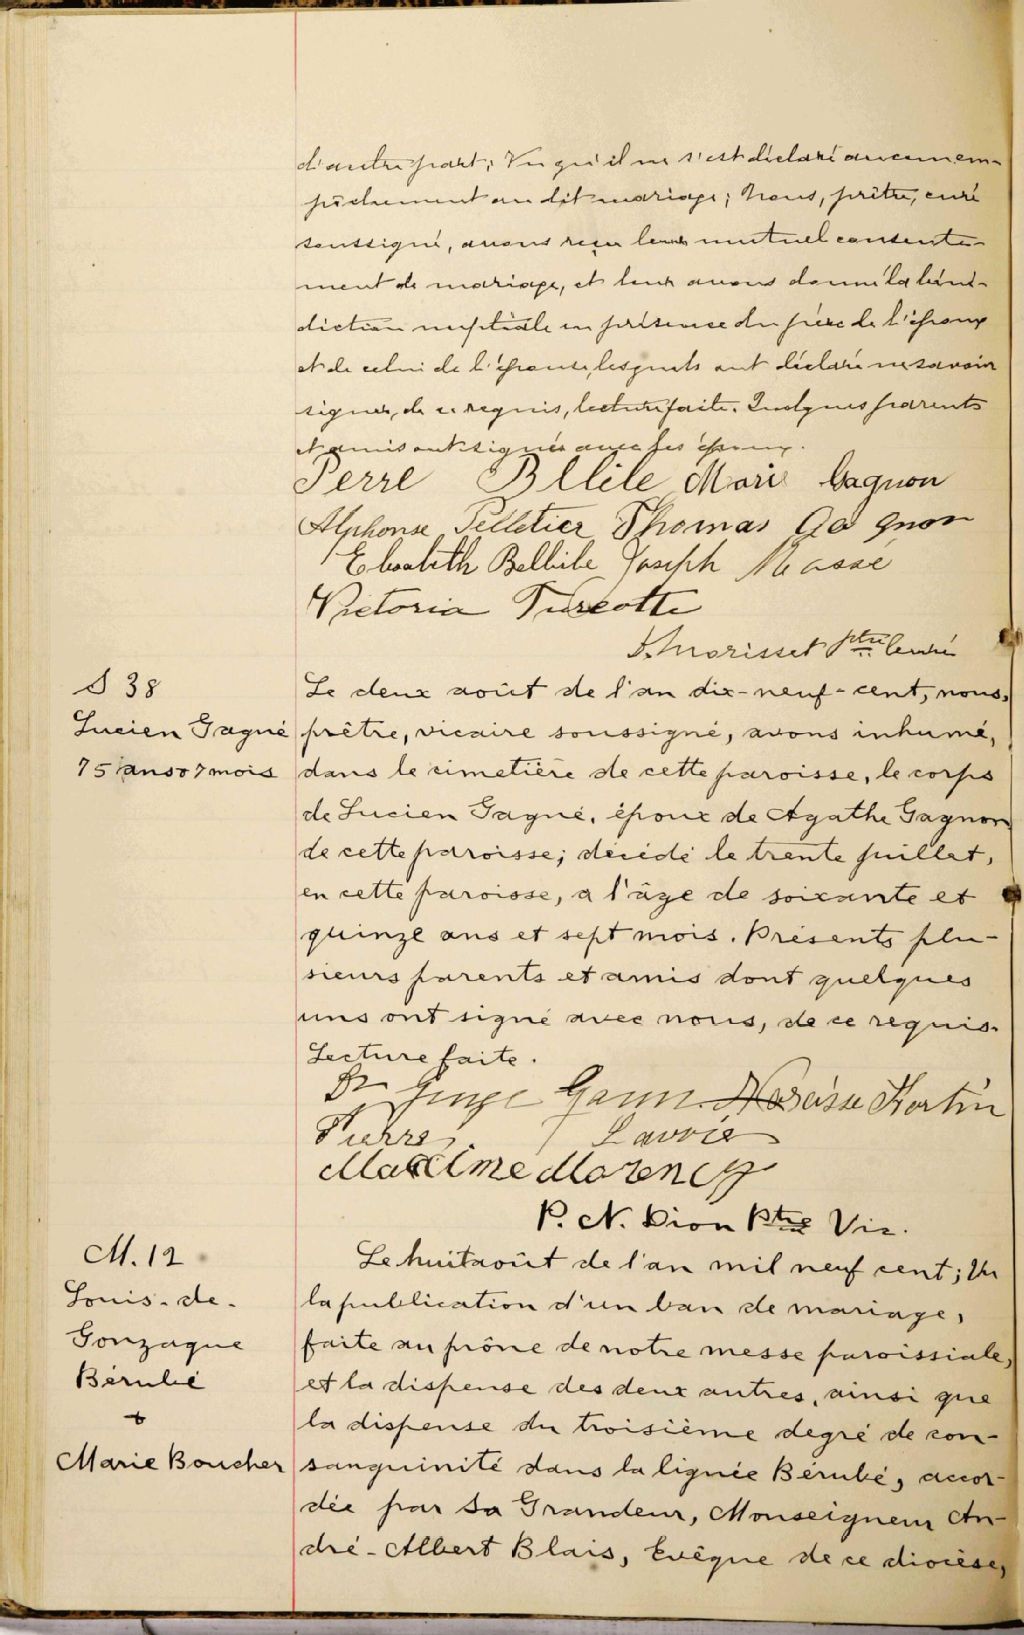 d'autre part; Vu qu'il ne s'est déclaré aucun em-
pêchement au dit mariage; Nous, prêtre, curé
soussigné, avons reçu leur mutuel consente-
ment de mariage, et leur avons donné la béné-
diction nuptiale en présence du père de l'époux
et de celui de l'épouse, lesquels ont déclaré ne savoir
signer, de ce requis, lecture faite. Quelques parents
et amis ont signés avec les époux.
Perre Bllile Marie Gagnon
Alphonse Pelletier Thomas Gagnon
Elisabeth Bellile Joseph Massé
Victoria Turcotte
Morisset ptre Curé
S 38
Lucien Gagné
75 ans 7 mois
Le deux août de l'an dix-neuf-cent, nous,
prêtre, vicaire soussigné, avons inhumé,
dans le cimetière de cette paroisse, le corps
de Lucien Gagné, époux de Agathe Gagnon
de cette paroisse; décédé le trente juillet,
en cette paroisse, a l'âge de soixante et
quinze ans et sept mois. Présents plu-
sieurs parents et amis dont quelques
uns ont signé avec nous, de ce requis.
Lecture faite.
Narcisse Fortin
Pierre Lavoie
Maxime Morency
P. N. Dion Ptre Vic.
M. 12
Louis-de-
Gonzague
Bérubé
+
Marie Boucher
Le huit août de l'an mil neuf cent; Vu
la publication d'un ban de mariage,
faite au prône de notre messe paroissiale,
et la dispense des deux autres, ainsi que
la dispense du troisième degré de con-
sanguinité dans la lignée Bérubé, accor-
dée par Sa Grandeur, Monseigneur An-
dré-Albert Blais, Evêque de ce diocèse,